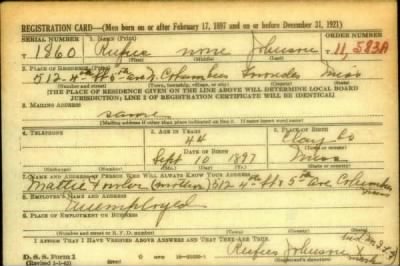 REGISTRATION CARD—(Men born on or after February 17, 1897 and on or before December 31, 1921)
SERIAL NUMBER 1. NAME (Print) ORDER NUMBER
T 1860 Rufus none Johnson 11,583A
(First) (Middle) (Last)
2. PLACE OF RESIDENCE (Print)
512 4th St 5th ave. Columbus Lowndes Miss
(Number and street) (Town, township, village, or city) (County) (State)
[THE PLACE OF RESIDENCE GIVEN ON THE LINE ABOVE WILL DETERMINE LOCAL BOARD
JURISDICTION; LINE 2 OF REGISTRATION CERTIFICATE WILL BE IDENTICAL]
3. MAILING ADDRESS
same
[Mailing address if other than place indicated on line 2. If same insert word same]
4. TELEPHONE 5. AGE IN YEARS 6. PLACE OF BIRTH
44 Clay Co
DATE OF BIRTH (Town or county)
Sept 10 1897 Miss
(Exchange) (Number) (Mo.) (Day) (Yr.) (State or country)
7. NAME AND ADDRESS OF PERSON WHO WILL ALWAYS KNOW YOUR ADDRESS
Mattie (mother) 512 4th St 5th ave Columbus
Miss
8. EMPLOYER'S NAME AND ADDRESS
Unemployed
9. PLACE OF EMPLOYMENT OR BUSINESS
(Number and street or R. F. D. number) (Town) (County) (State)
I AFFIRM THAT I HAVE VERIFIED ABOVE ANSWERS AND THAT THEY ARE TRUE.
D. S. S. Form 1 Rufus Johnson X
(Revised 1-1-42) (over) mark
(Registrant's signature)